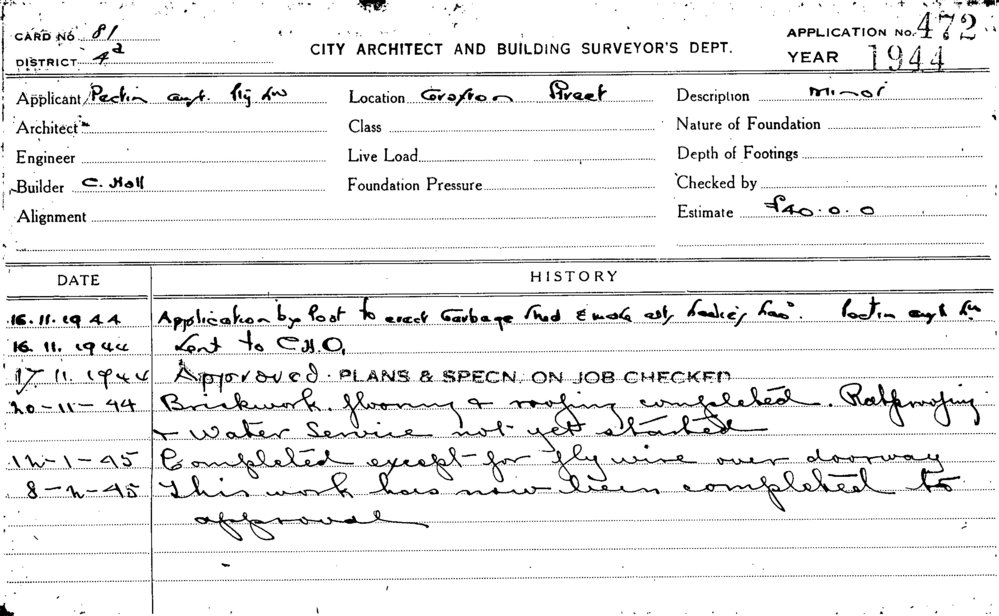 CARD NO 81
DISTRICT 4a
CITY ARCHITECT AND BUILDING SURVEYOR'S DEPT.
APPLICATION No. 472
YEAR 1944
Applicant Location Street Description Minor
Architect Class Nature of Foundation
Engineer Live Load Depth of Footings
Builder C. Hall Foundation Pressure Checked by
Alignment Estimate £40.0.0
DATE HISTORY
16.11.1944 Application by Post to erect Garbage Shed &
16.11.1944 Sent to C.H.O.
17.11.1944 Approved. PLANS & SPECN. ON JOB CHECKED
20-11-44 Brickwork. flooring & roofing completed. Ratproofing
& Water Service not yet started
12-1-45 Completed except for fly wire over doorway
8-2-45 This work has now been completed to
approval